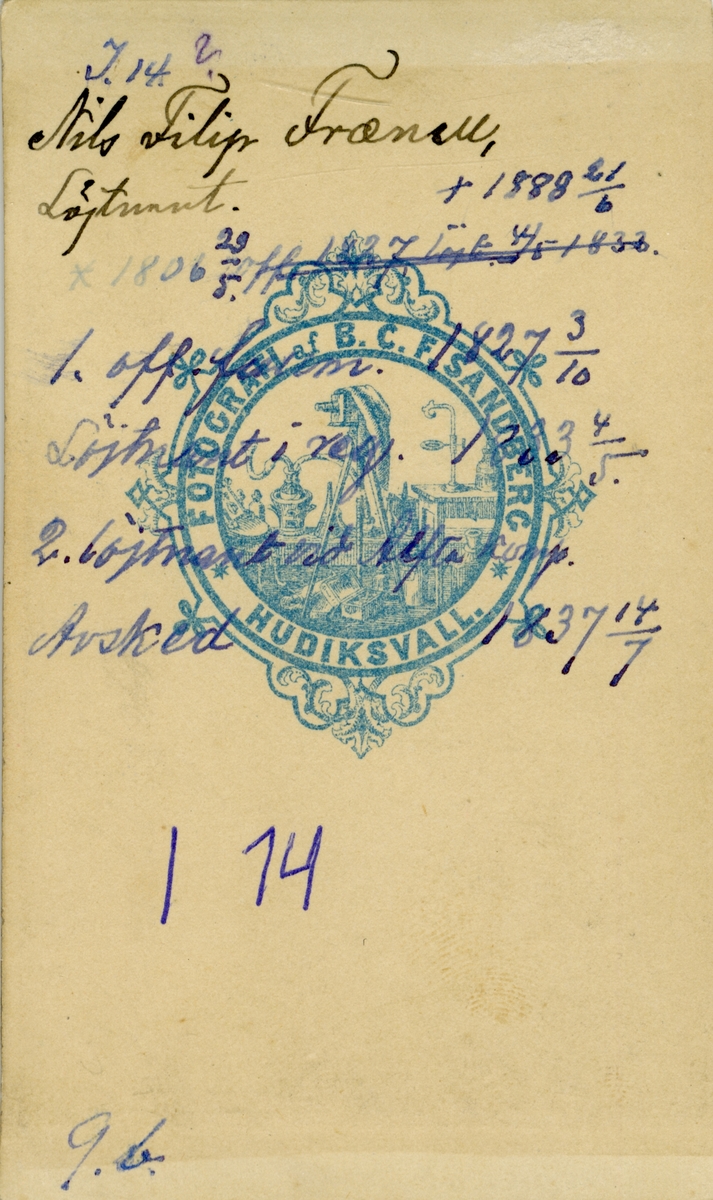 I. 14. 2.
Nils Filip Frænell,
Löjtnant.
+ 1888 21/6
x 1806 29/5. Off. 1827, Löjt. 4/5 1833.
1. off. 1827 3/10
Löjtnant i reg. 1833 4/5.
2. Löjtnant vid Alfta komp.
Avsked 1837 14/7
FOTOGRAFI af B. C. F. SANDBERG
* HUDIKSVALL. *
I 14
9. b.